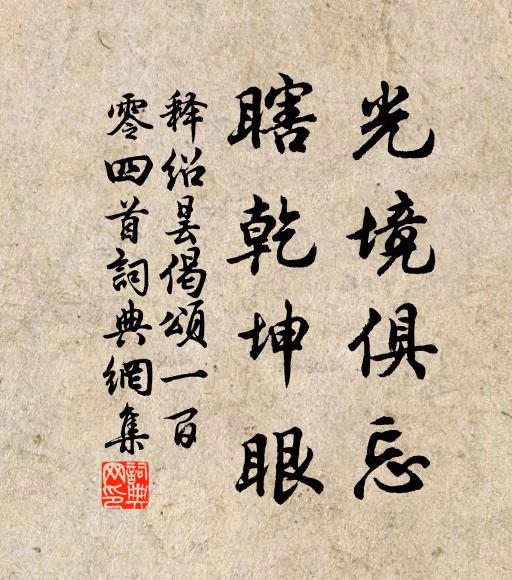 光境俱忘
瞎乾坤眼
释绍昙偈颂一百
零四首詞典網集
詞典网印